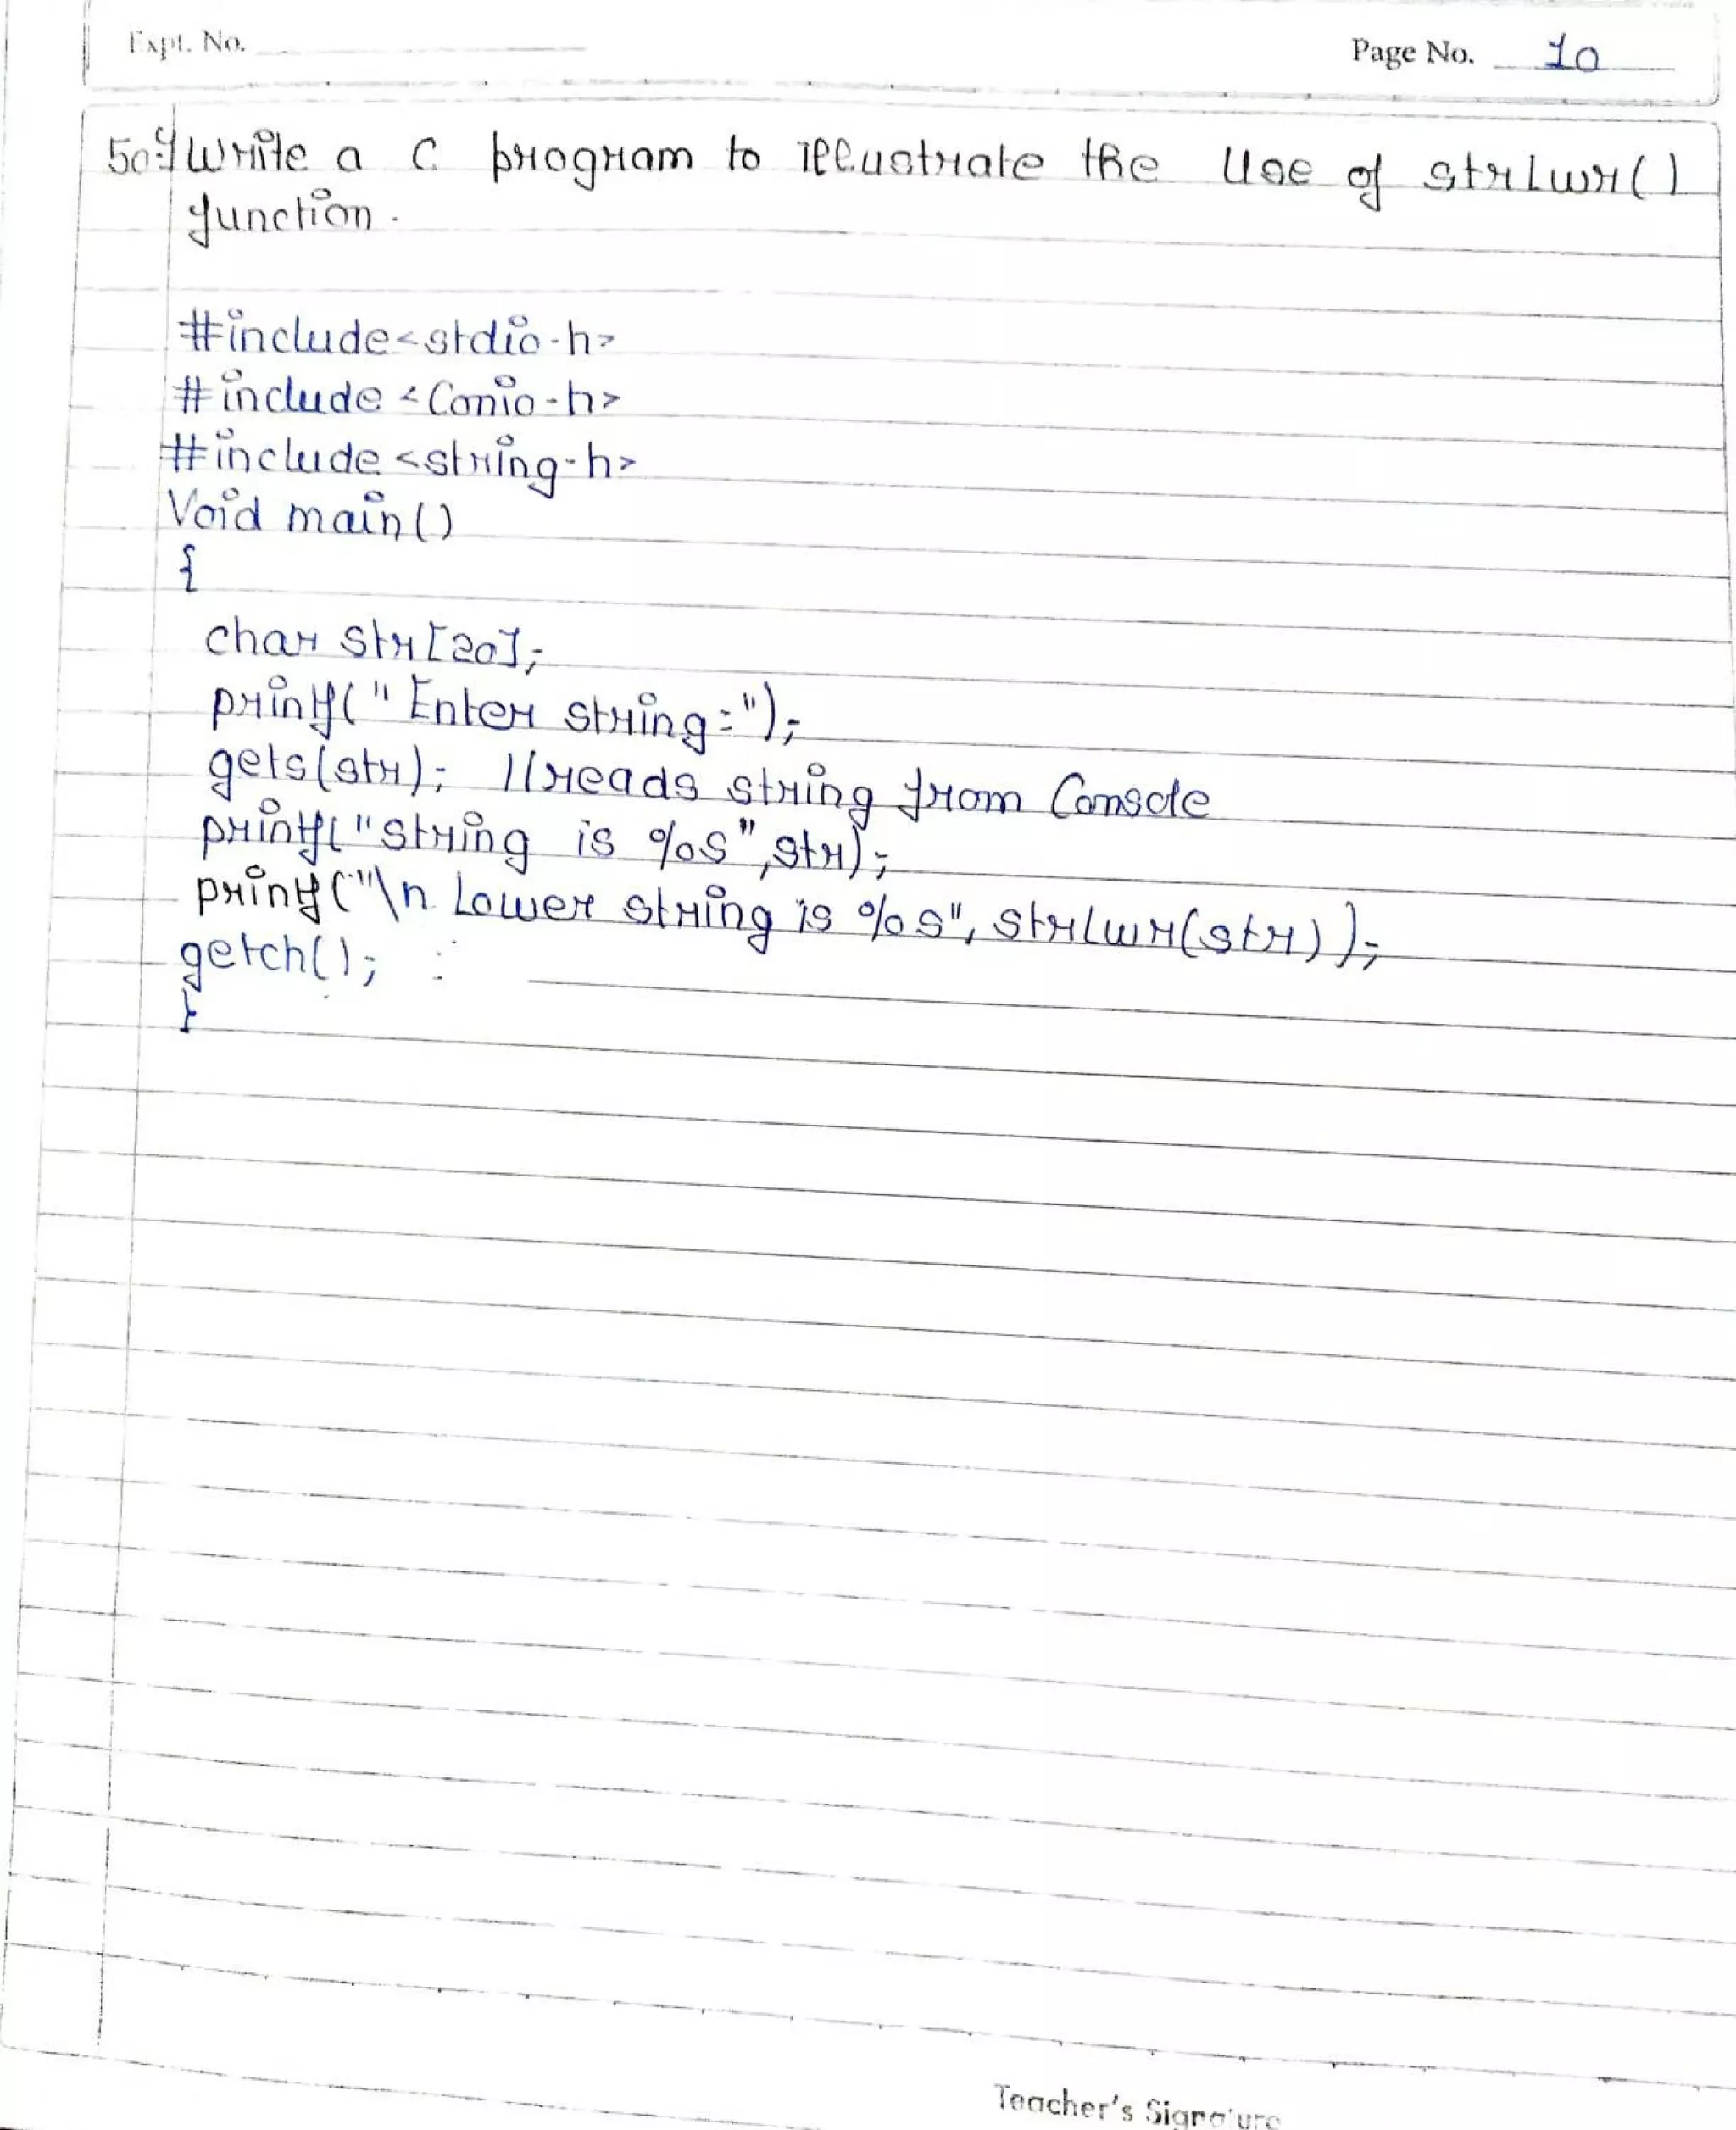 Expt. No.
Page No. 10
50.) Write a C program to illustrate the Use of strLwr()
function.
#include<stdio.h>
#include <Conio.h>
#include <string.h>
Void main()
{
char str[20];
printf(" Enter string:");
gets(str); //reads string from Console
printf("string is %s",str);
printf("\n Lower string is %s", strlwr(str));
getch();
}
Teacher's Signature